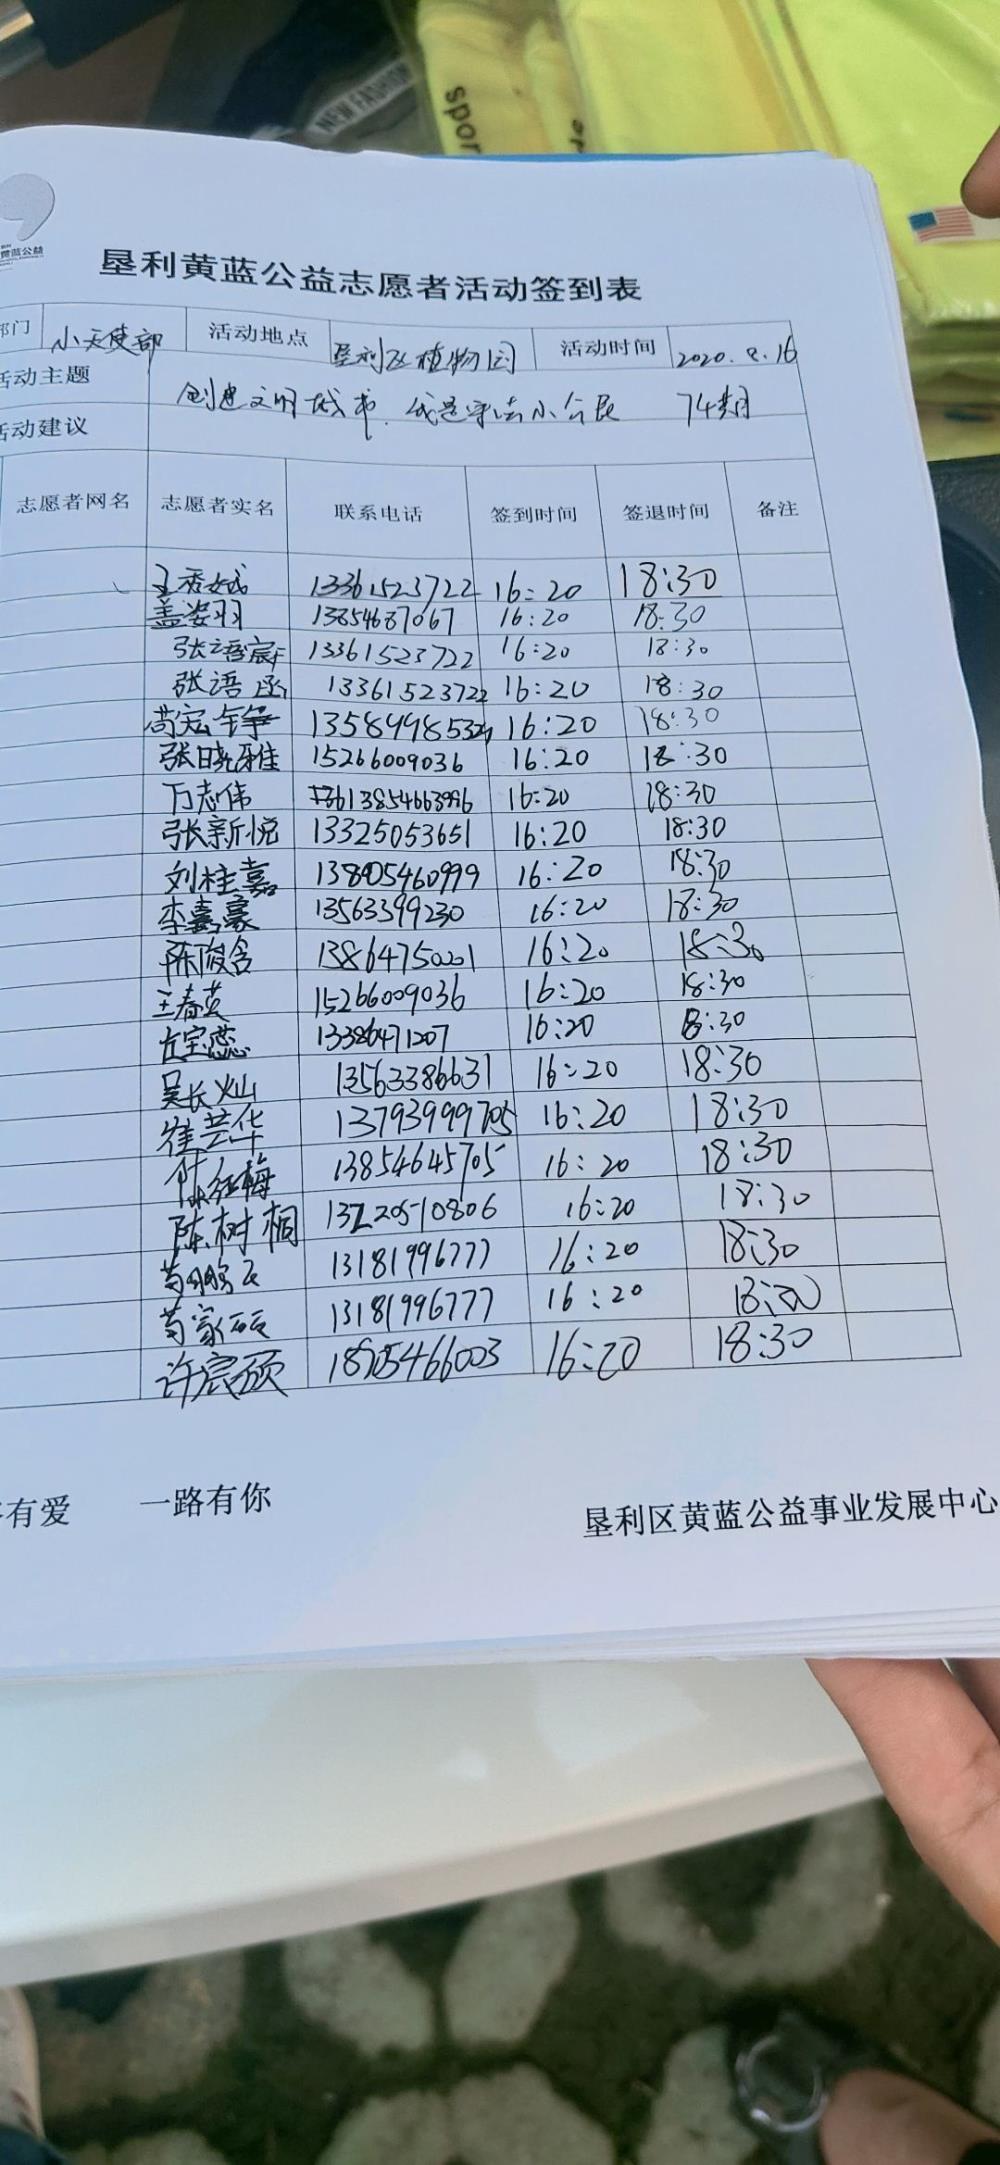 NEW FASHION
spor
黄蓝公益
垦利黄蓝公益志愿者活动签到表
部门 小天使部 活动地点 垦利区植物园 活动时间 2020.8.16
活动主题 创建文明城市.我是守法小公民 74期
活动建议
志愿者网名 志愿者实名 联系电话 签到时间 签退时间 备注
13361523722 16:20 18:30
盖姿羽 13854687067 16:20 18:30
张语宸 13361523722 16:20 18:30
张语函 13361523722 16:20 18:30
16:20 18:30
张晓雅 15266009036 16:20 18:30
万志伟 13854663996 16:20 18:30
张新悦 13325053651 16:20 18:30
刘桂嘉 13805460999 16:20 18:30
李嘉豪 13563399230 16:20 18:30
陈俊含 13864750001 16:20 18:30
王春英 15266009036 16:20 18:30
13386471207 16:20 8:30
吴长灿 13563386631 16:20 18:30
崔芸华 13793999705 16:20 18:30
陈红梅 13854645705 16:20 18:30
陈树桐 13220510806 16:20 18:30
13181996777 16:20 18:30
13181996777 16:20 18:30
许宸硕 18905466003 16:20 18:30
有爱 一路有你
垦利区黄蓝公益事业发展中心